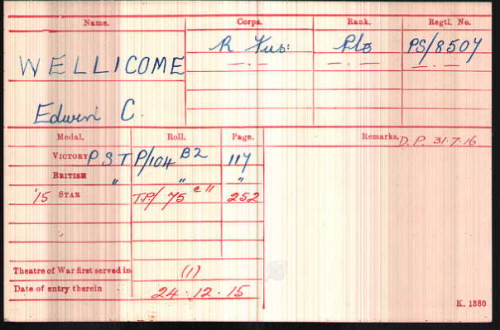 Name. Corps. Rank. Regtl. No.
WELLICOME R Fus: Pte PS/8507
Edwin C.
Medal. Roll. Page. Remarks.
VICTORY P S T P/104 B2 117 D.P. 31.7.16
BRITISH " " "
'15 STAR TP/75 C11 252
Theatre of War first served in (1)
Date of entry therein 24.12.15
K. 1380